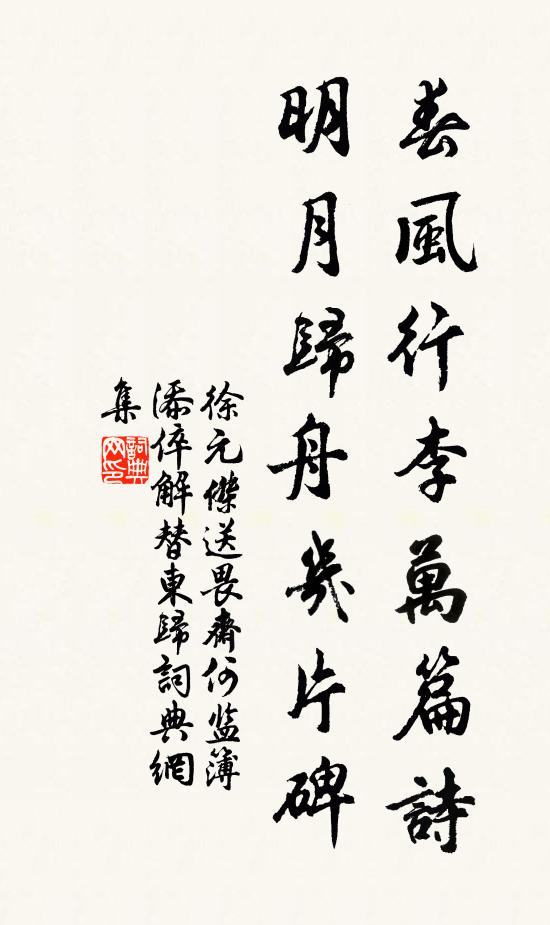 春風行李萬篇詩
明月歸舟幾片碑
徐元傑送畏齋何监簿
添倅解替東歸詞典網
集
詞典網印